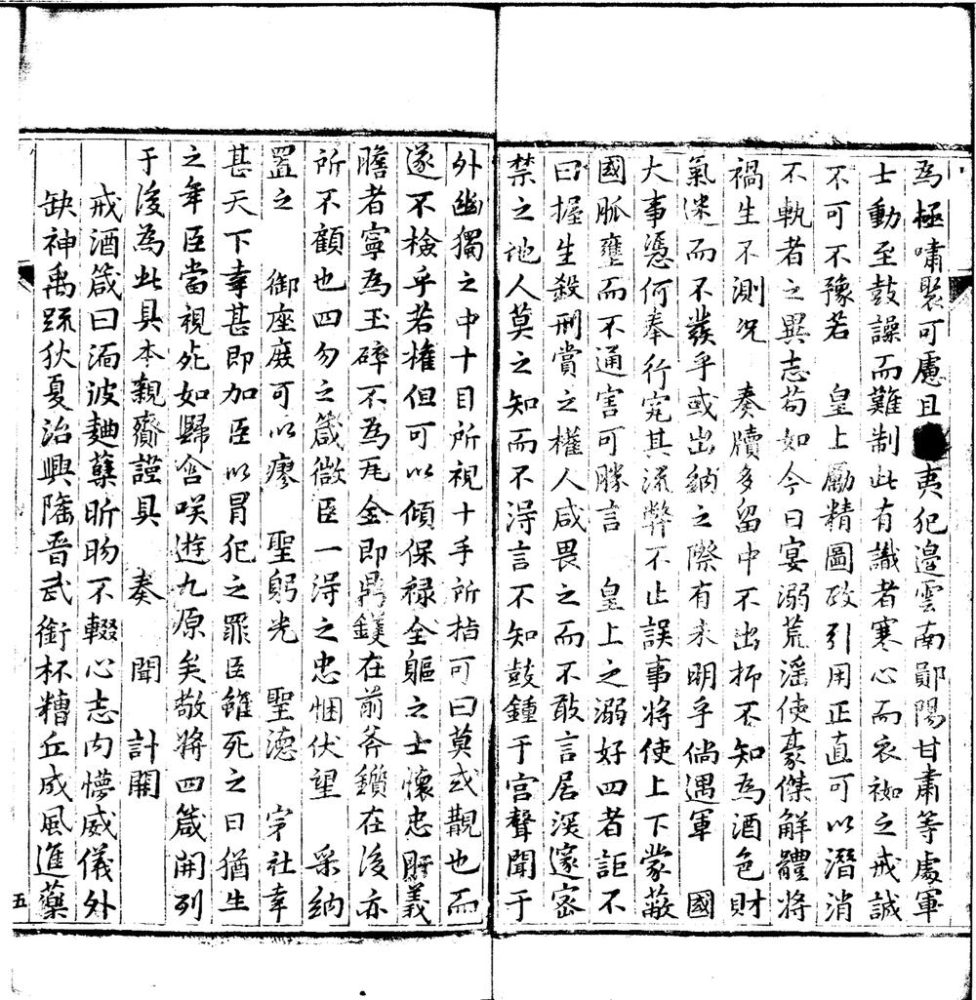 為極嘯聚可慮且夷犯邊雲南鄖陽甘肅等處軍
士動至鼓譟而難制此有識者寒心而衣袽之戒誠
不可不豫若 皇上勵精圖政引用正直可以潛消
不軌者之異志苟如今日宴溺荒滛使豪傑解體將
禍生不測况 奏牘多留中不出抑不知為酒色財
氣迷而不發乎或出納之際有未明乎倘遇軍 國
大事憑何奉行究其流弊不止誤事將使上下蒙蔽
國脈壅而不通害可勝言 皇上之溺好四者詎不
曰握生殺刑賞之權人咸畏之而不敢言居深邃密
禁之地人莫之知而不淂言不知鼓鍾于宫聲聞于
外幽獨之中十目所視十手所指可曰莫或覯也而
遂不檢乎若權但可以傾保禄全軀之士懷忠肝義
膽者寧為玉碎不為瓦全即鼎鑊在前斧鑕在後亦
所不顧也四勿之箴微臣一淂之忠悃伏望 采納
置之 御座庶可以瘳 聖躬光 聖德 宗社幸
甚天下幸甚即加臣以冐犯之罪臣雖死之日猶生
之年臣當視死如歸含咲遊九原矣敬將四箴開列
于後為此具本親齎謹具 奏 聞 計開
戒酒箴曰湎波麯蘖昕昒不輟心志内懜威儀外
缺神禹疏狄夏治興隆晋武銜杯糟丘成風進藥
五